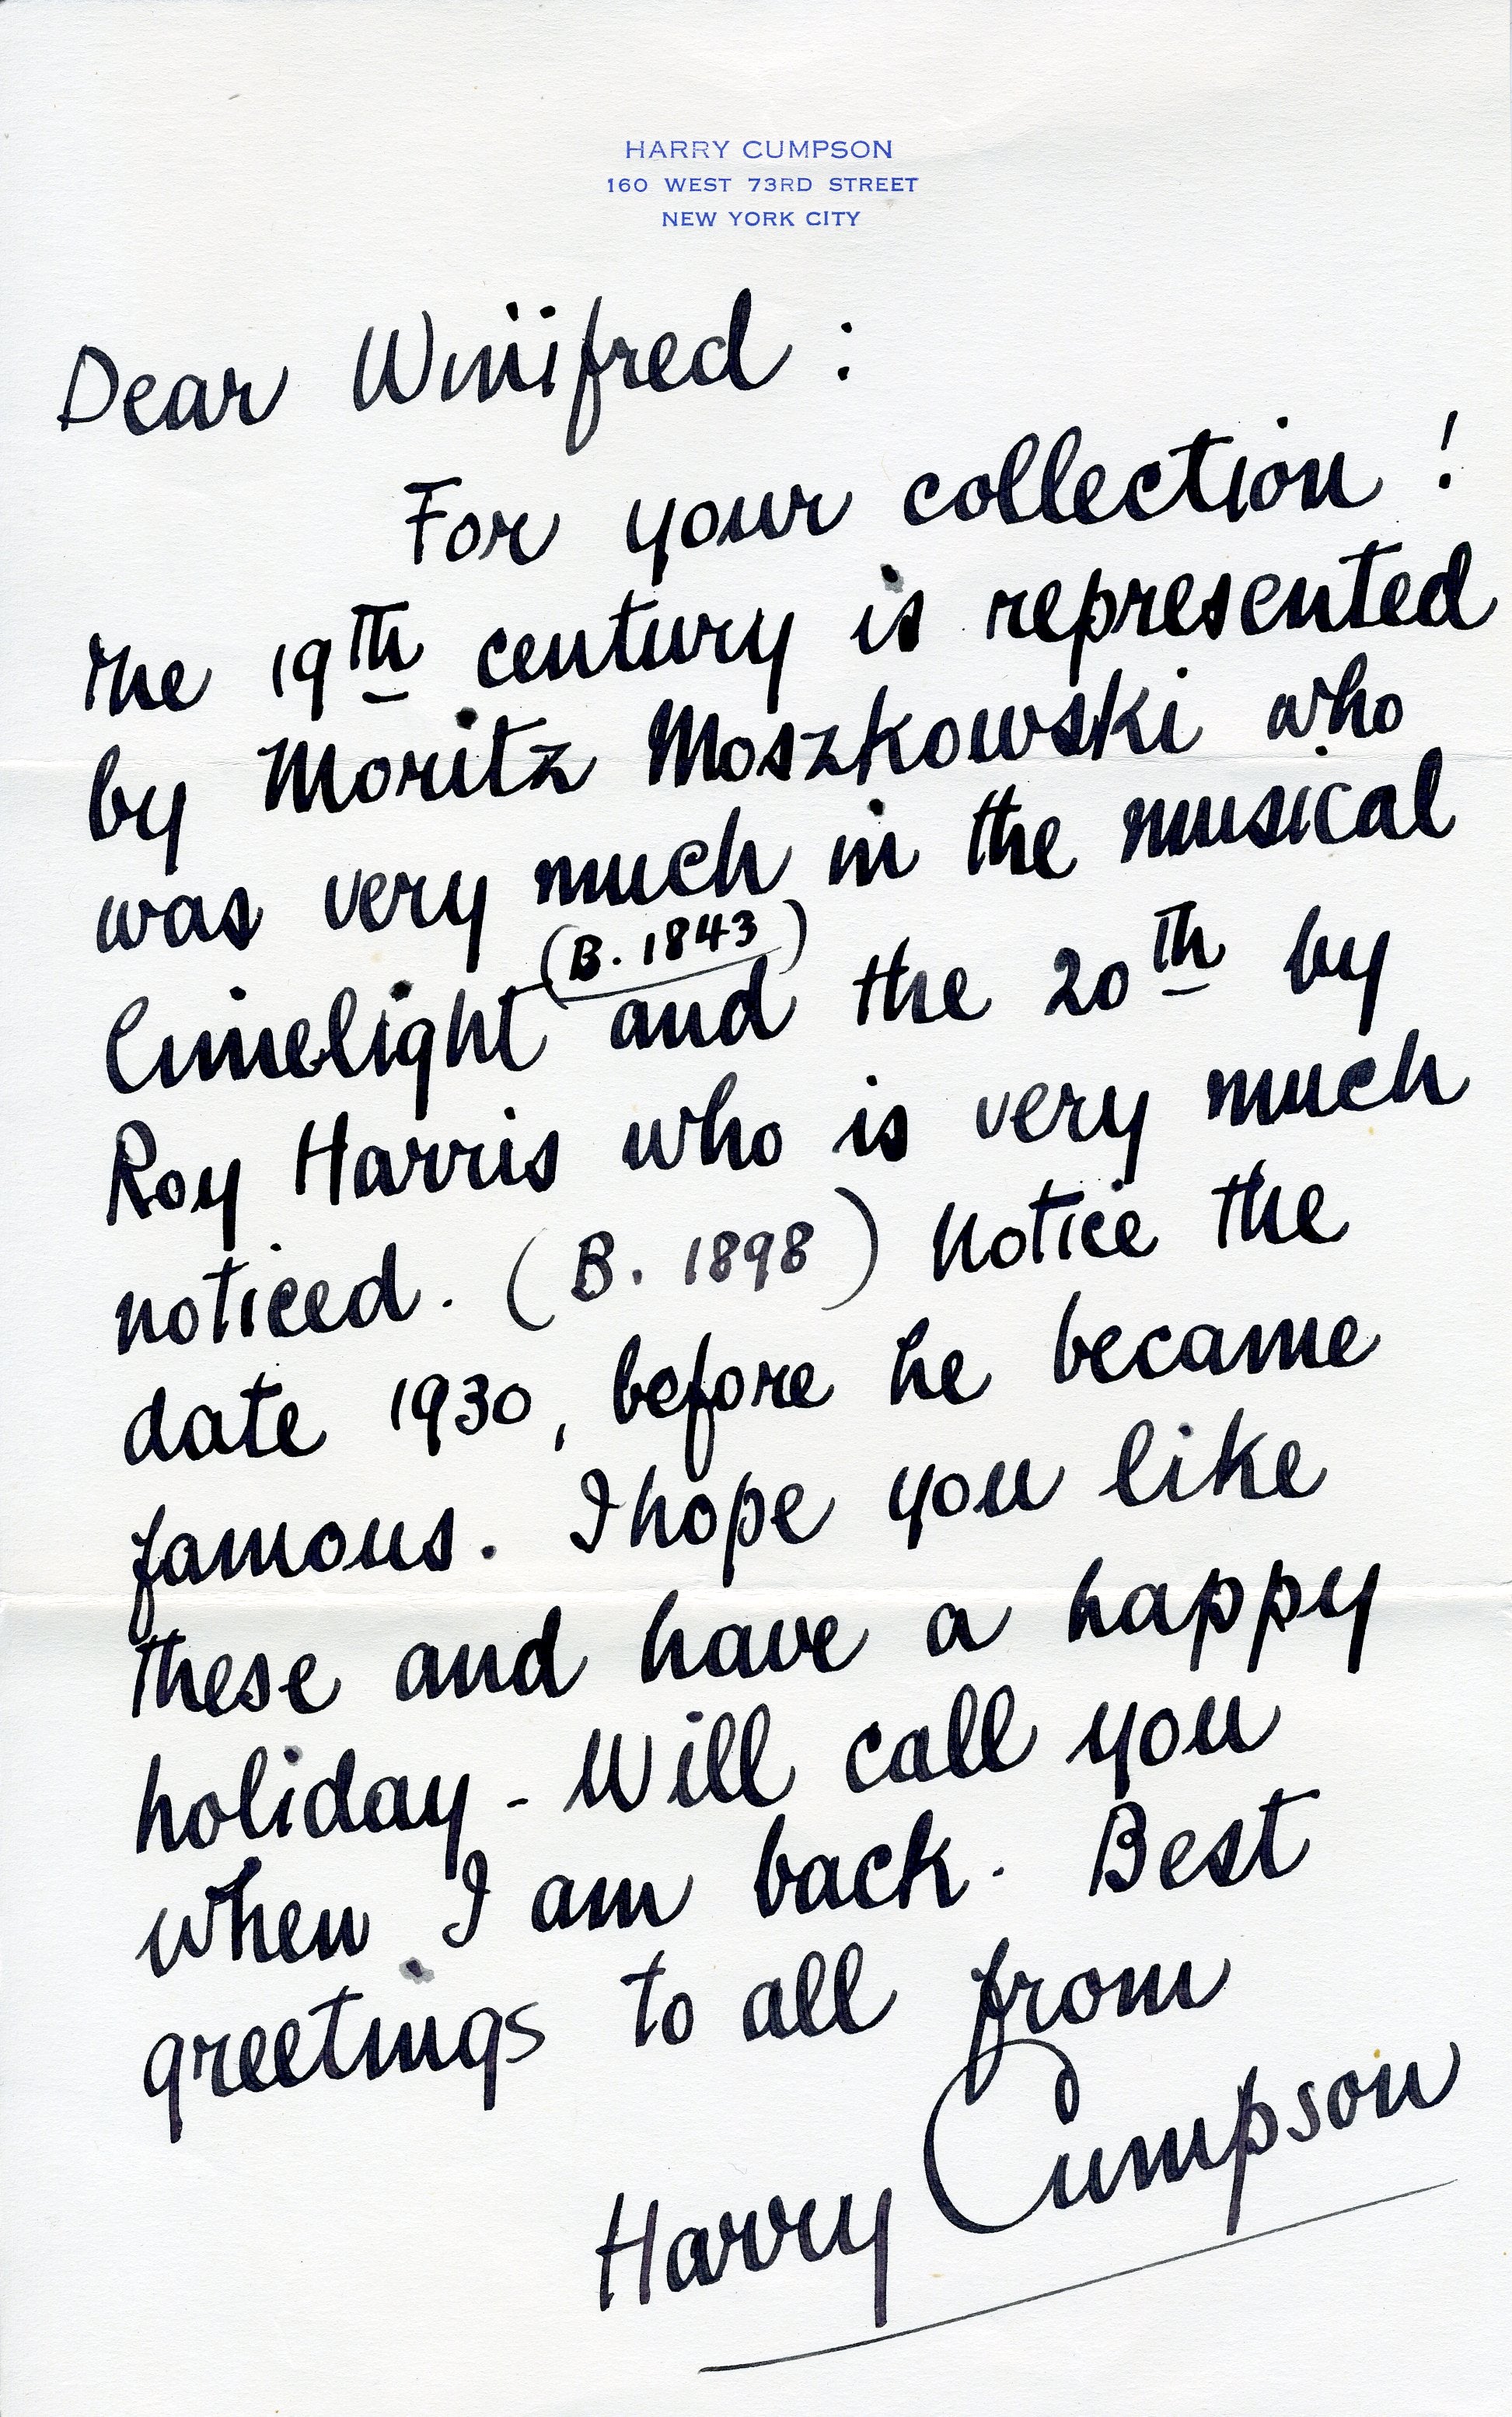 HARRY CUMPSON
160 WEST 73RD STREET
NEW YORK CITY
Dear Winifred :
For your collection !
the 19th century is represented
by Moritz Moszkowski who
was very much in the musical
(B. 1843)
limelight and the 20th by
Roy Harris who is very much
noticed. (B. 1898) Notice the
date 1930, before he became
famous. I hope you like
these and have a happy
holiday - Will call you
when I am back. Best
greetings to all from
Harry Cumpson